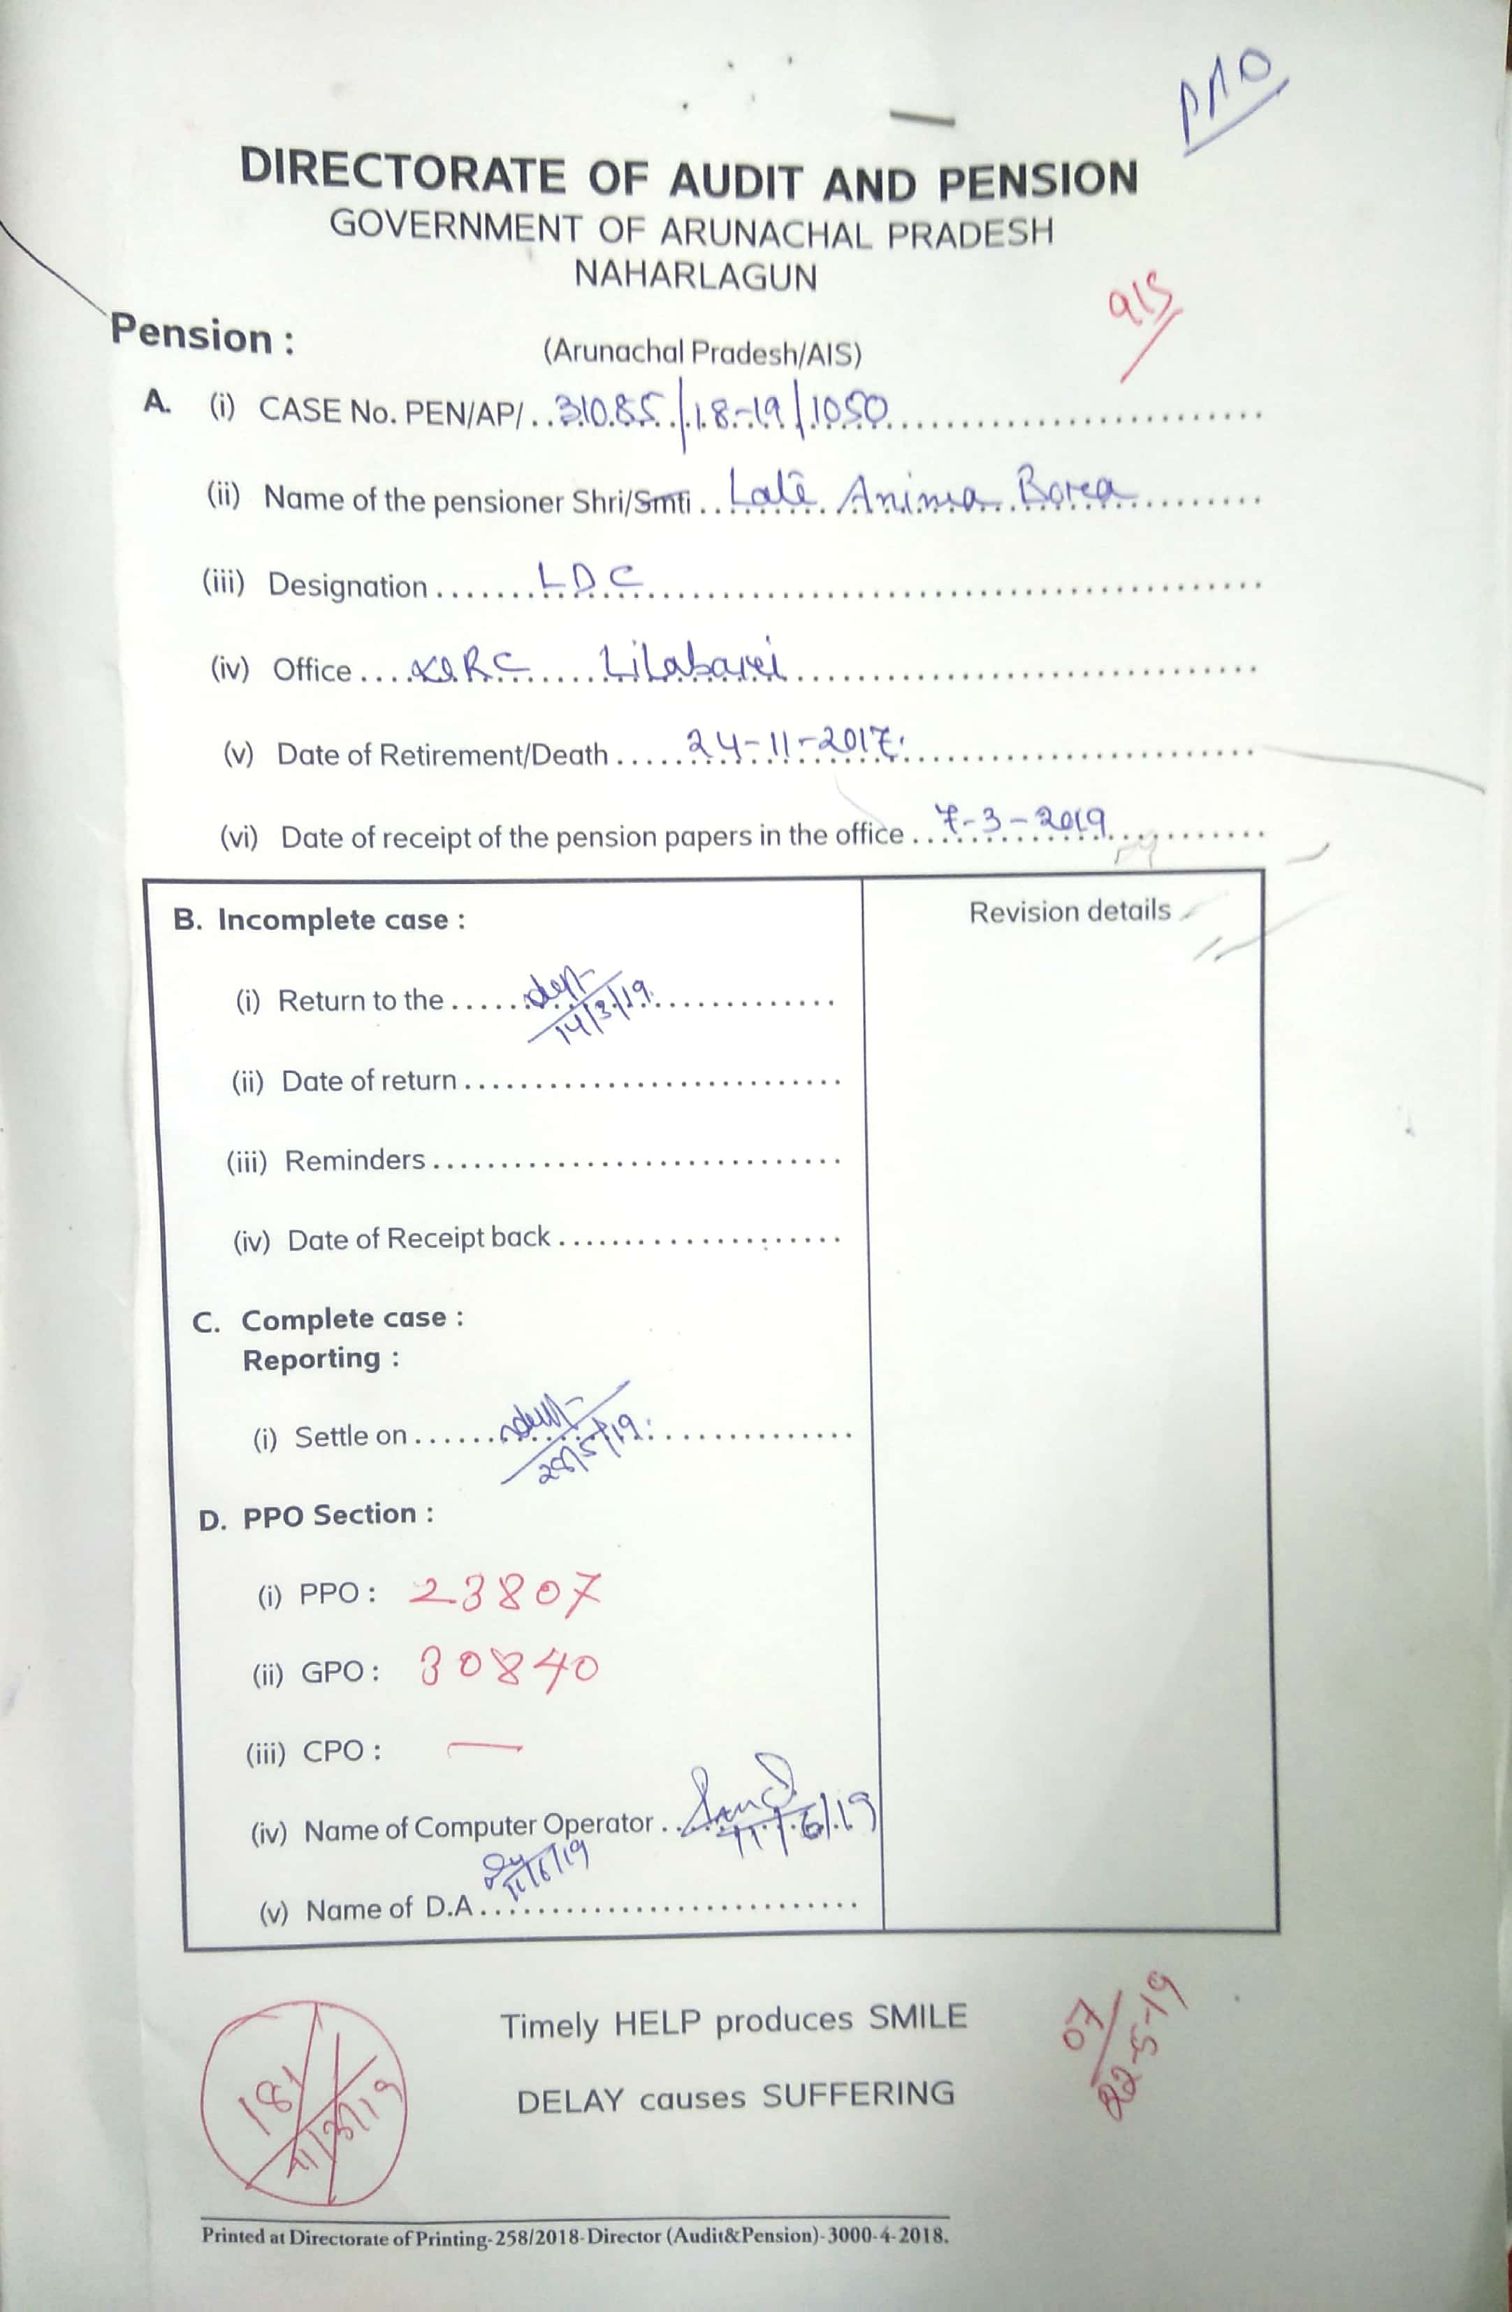 DIRECTORATE OF AUDIT AND PENSION
GOVERNMENT OF ARUNACHAL PRADESH
NAHARLAGUN
915
Pension :
(Arunachal Pradesh/AIS)
A. (i) CASE No. PEN/AP/..31085/18-19/1050
(ii) Name of the pensioner Shri/Smti .. Late Anima Borea
(iii) Designation ....... LDC
(iv) Office .... RC Lilabari
(v) Date of Retirement/Death ..... 24-11-2017
(vi) Date of receipt of the pension papers in the office ... 7-3-2019
B. Incomplete case :
Revision details
(i) Return to the ...... 14/3/19
(ii) Date of return
(iii) Reminders
(iv) Date of Receipt back
C. Complete case :
Reporting :
(i) Settle on ...... 28/5/19
D. PPO Section :
(i) PPO : 23807
(ii) GPO : 30840
(iii) CPO : —
(iv) Name of Computer Operator .. 11/6/19
11/6/19
(v) Name of D.A
Timely HELP produces SMILE
07
22-5-19
DELAY causes SUFFERING
181
Printed at Directorate of Printing-258/2018-Director (Audit&Pension)-3000-4-2018.